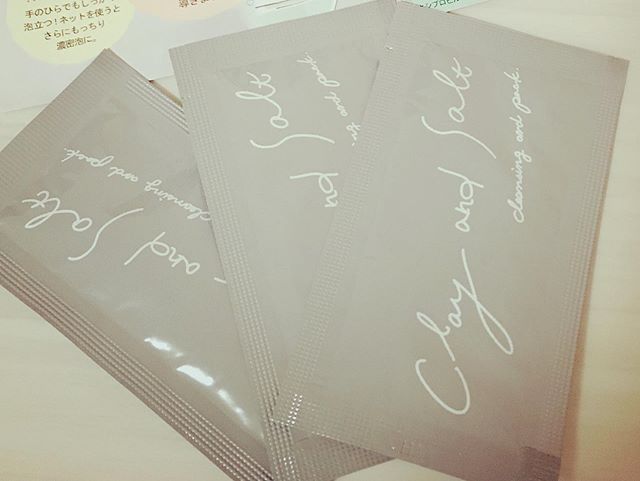 手のひらでもしっか
泡立つ!ネットを使うと
さらにもっちり
濃密泡に。
導きま
シプロピル
Salt
and
cleansing and pack.
Salt
nd
and pack.
Clay and Salt
cleansing and pack.